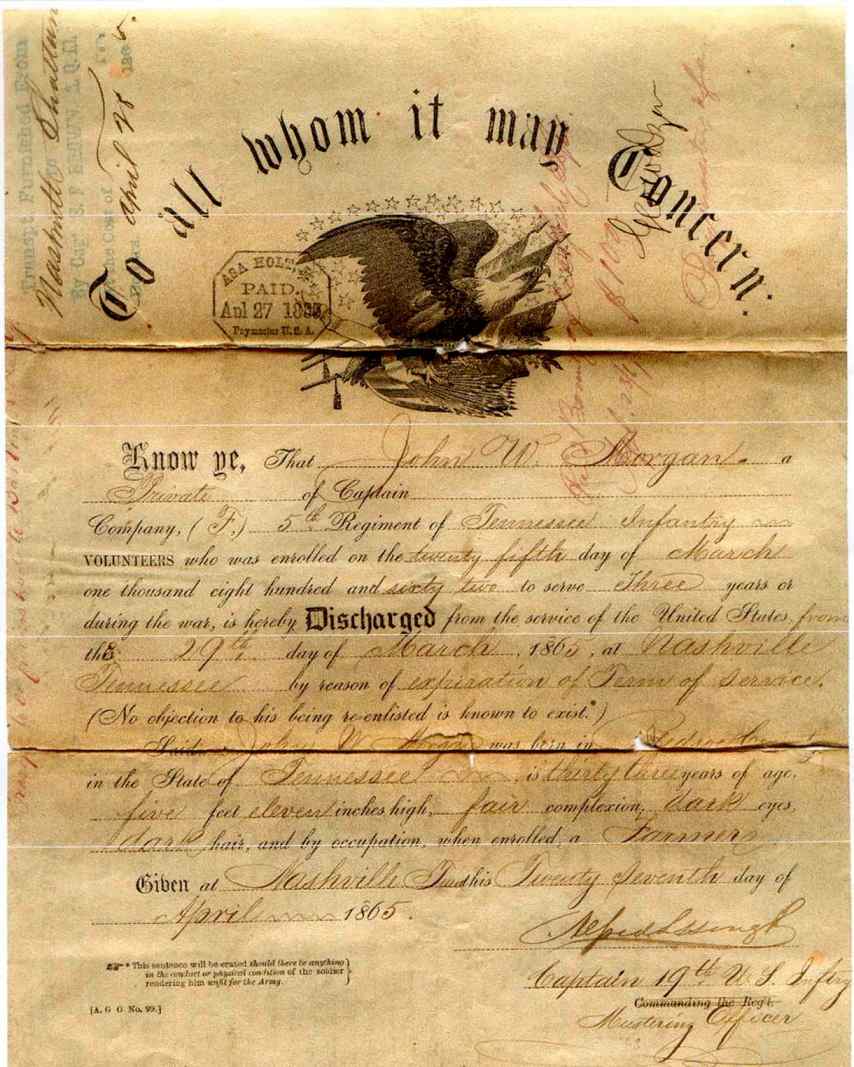 To all whom it may Concern:
Transpt. Furnished From
Nashville
By Capt. S. F. BROWN, A.Q.M.
the Cost of
April 28 186
ASA HOLT
PAID.
Apl 27 1865
Paymaster U.S.A.
Know ye, That John W. Morgan. a
Private of Captain
Company, (F.) 5th Regiment of Tennessee Infantry
VOLUNTEERS who was enrolled on the twenty fifth day of March
one thousand eight hundred and sixty two to serve Three years or
during the war, is hereby Discharged from the service of the United States, from
the 29th day of March, 1865, at Nashville
Tennessee by reason of expiration of Term of service.
(No objection to his being re-enlisted is known to exist.*)
Said John W. Morgan was born in
in the State of Tennessee is thirty three years of age,
five feet eleven inches high, fair complexion, dark eyes,
dark hair, and by occupation, when enrolled a Farmer
Given at Nashville this Twenty Seventh day of
April 1865.
Captain 19th U.S. Inftry
Commanding the Reg't.
Mustering Officer
* This sentence will be erased should there be anything
in the conduct or physical condition of the soldier
rendering him unfit for the Army.
[A. G O No. 99.]